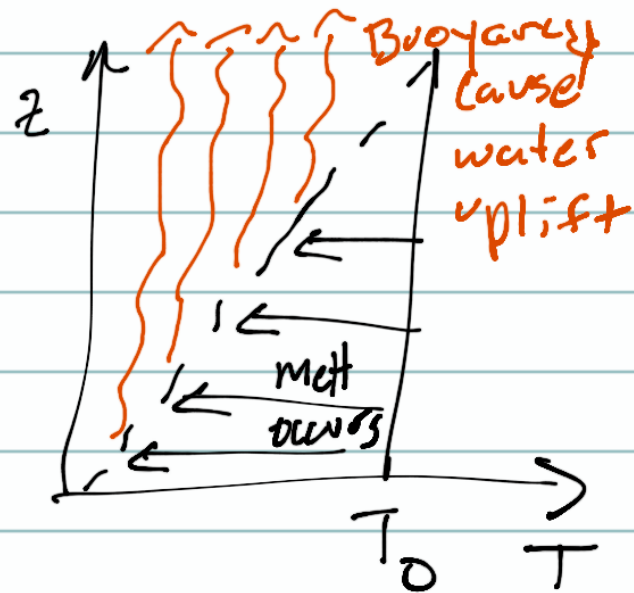 Buoyancy
z
cause
water
uplift
Melt
occurs
T0
T